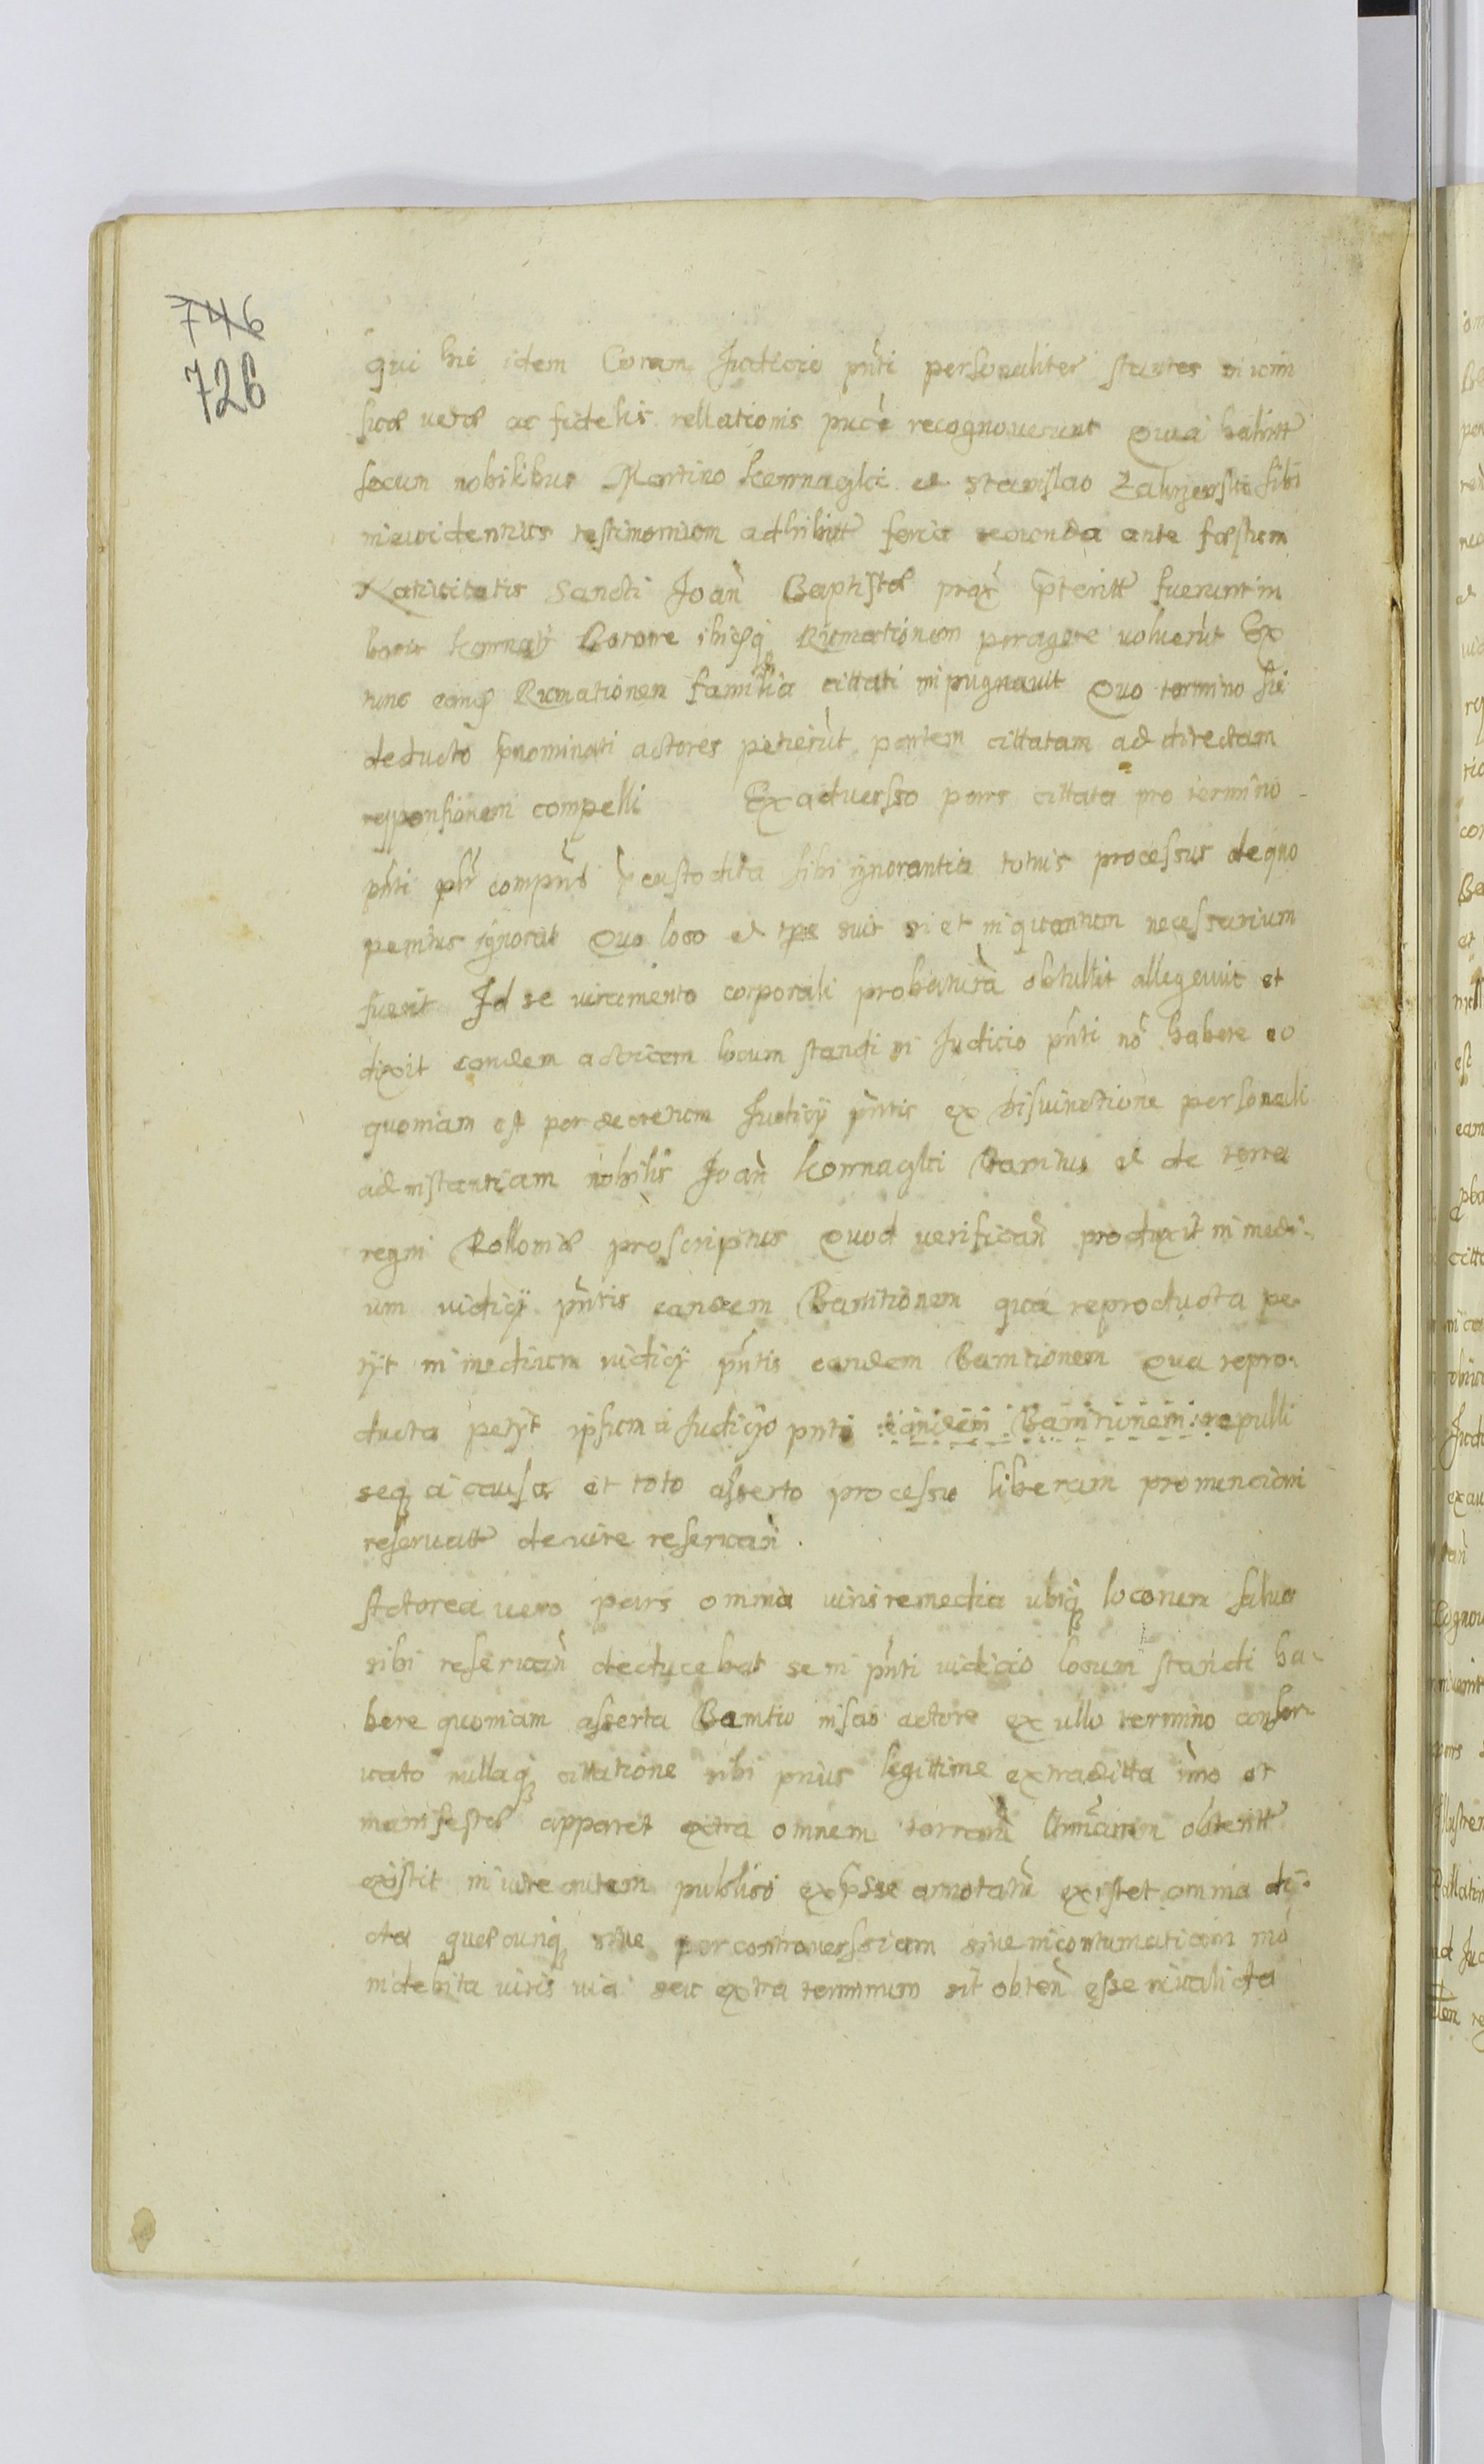 746
726
qui hi idem Coram Judicio pñti personaliter stantes in vim
suæ veræ ac fidelis rellationis puce recognoverunt Quia habitt
secum nobilibus Martino komnaglci et Stanislao sibi
in evidentius testimonium adhibitt feria secunda ante fæstum
Nativitatis Sancti Joañ Baptistæ prox ꝑteritt fuerunt in
bonis ibiq Rumationem peragere voluerut Ex
tunc eamq Rumationem familia cittati impugnavit Quo termino sic
deducto ſnominati actores petierut partem cittatam ad directam
responsionem compelli Ex adversso pars cittata pro termino
pñti custodita sibi ignorantia totius processus de quo
penitus ignorat Quo loco et tpe suis si et in quantum necessarium
fuerit Id se iuramento corporali probaturã obtullit allegavit et
dixit eandem actricem locum standi in Judicio pñti nõ habere eo
quoniam est per decretum Judicij pñtis ex disiunctione personali
ad instantiam nobilis Joañ komnaglci Banitus et de terra
regni Polloniæ proscriptus Quod verificañ produxit in medi-
um iudicij pñtis eandem Banitionem qua reproducta pe-
tijt in medium iudicij pñtis eandem Banitionem Qua repro-
ducta petijt ipsum a Judicijo pnti eandem Banitionem repulli
seq a causa et toto asserto processu liberam pronuncicini
reservatt de iure reservañ.
Actorea vero pars omnia iuris remedia ubiq locorum salva
sibi reservañ deducebat se in pñti iudicio locum standi ha-
bere quoniam asserta Banitio inscio actore ex ullo termino conser-
vato nullaq cittatione sibi prius legittime extraditta imo et
manifestæ apparet extra omnem obtentt
existit in iure autem publico exꝑsse annotatũ existet omnia di-
cta quæcunq sive per controverssiam sive in contumatiam mo
indebita iuris via seu extra terminum sit obteñ esse invalida